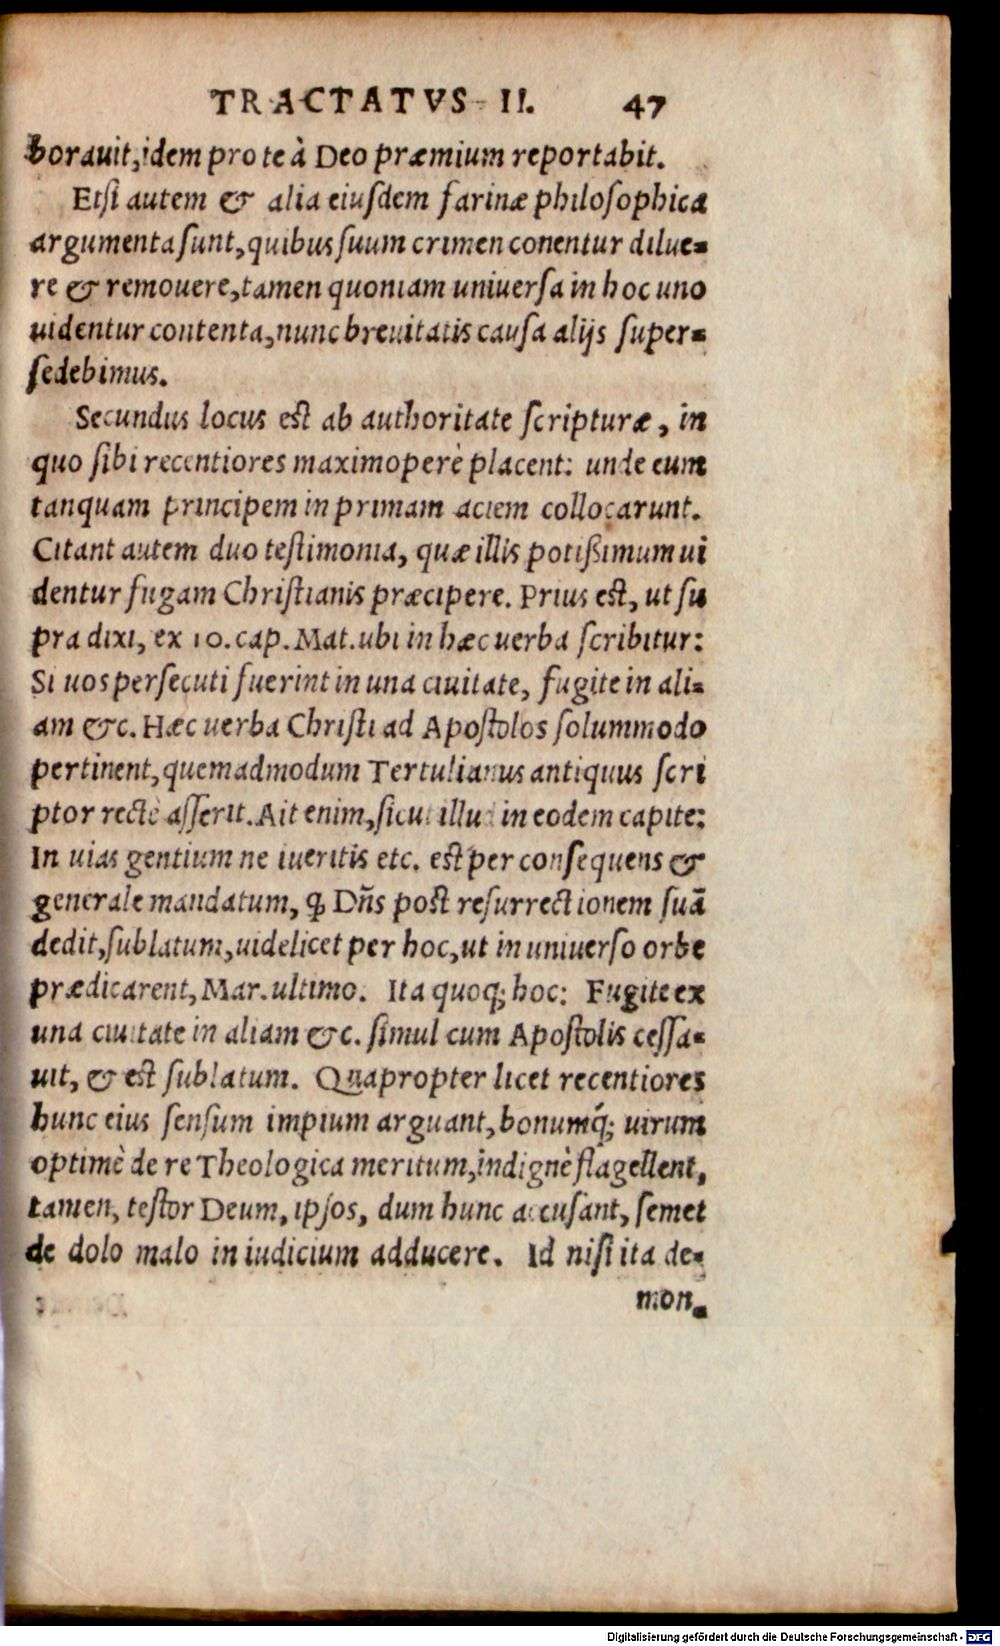 TRACTATVS II. 47
borauit, idem pro te à Deo præmium reportabit.
Etsi autem & alia eiusdem farinæ philosophica
argumenta sunt, quibus suum crimen conentur dilue-
re & remouere, tamen quoniam uniuersa in hoc uno
uidentur contenta, nunc breuitatis causa alijs super-
sedebimus.
Secundus locus est ab authoritate scripturæ, in
quo sibi recentiores maximoperè placent: unde eum
tanquam principem in primam aciem collocarunt.
Citant autem duo testimonia, quæ illis potißimum ui
dentur fugam Christianis præcipere. Prius est, ut su
pra dixi, ex 10. cap. Mat. ubi in hæc uerba scribitur:
Si uos persecuti fuerint in una ciuitate, fugite in ali-
am &c. Hæc uerba Christi ad Apostolos solummodo
pertinent, quemadmodum Tertulianus antiquus scri
ptor rectè asserit. Ait enim, sicut illud in eodem capite:
In uias gentium ne iueritis etc. est per consequens &
generale mandatum, ꝙ Dñs post resurrectionem suã
dedit, sublatum, uidelicet per hoc, ut in uniuerso orbe
prædicarent, Mar. ultimo. Ita quoq; hoc: Fugite ex
una ciuitate in aliam &c. simul cum Apostolis cessa-
uit, & est sublatum. Quapropter licet recentiores
hunc eius sensum impium arguant, bonumq́; uirum
optimè de re Theologica meritum, indignè flagellent,
tamen, testor Deum, ipsos, dum hunc accusant, semet
de dolo malo in iudicium adducere. Id nisi ita de-
mon-
Digitalisierung gefördert durch die Deutsche Forschungsgemeinschaft - DFG